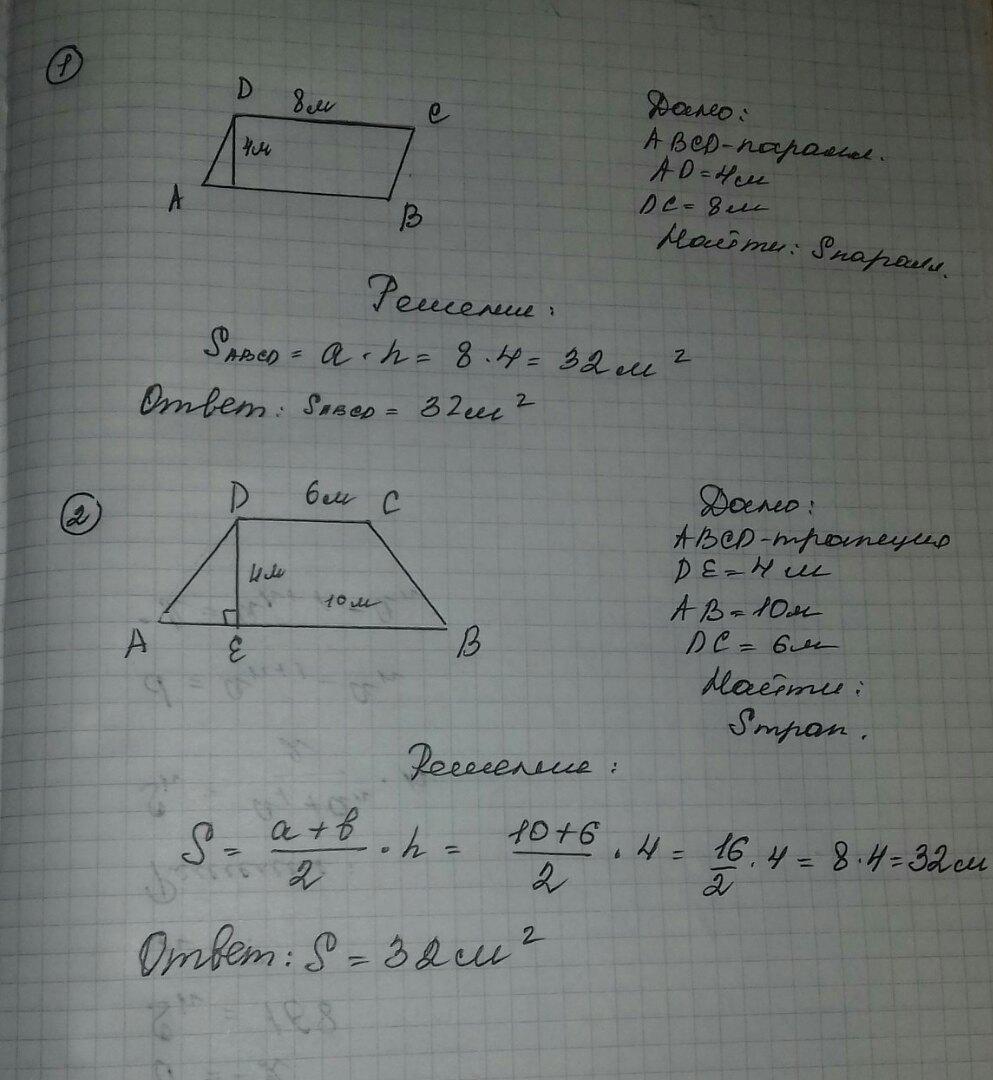 1
D 8м C
4м
A B
Дано:
ABCD-парамл.
AD=4м
DC=8м
Найти: Sпаралл.
Решение:
SABCD = a · h = 8 · 4 = 32 м²
Ответ: SABCD = 32м²
2
D 6м C
4м
10м
A E B
Дано:
ABCD-трапеция
DE=4м
AB=10м
DC=6м
Найти:
Sтрап.
Решение:
S = (a+b)/2 · h = (10+6)/2 · 4 = 16/2 · 4 = 8·4=32м
Ответ: S = 32м²